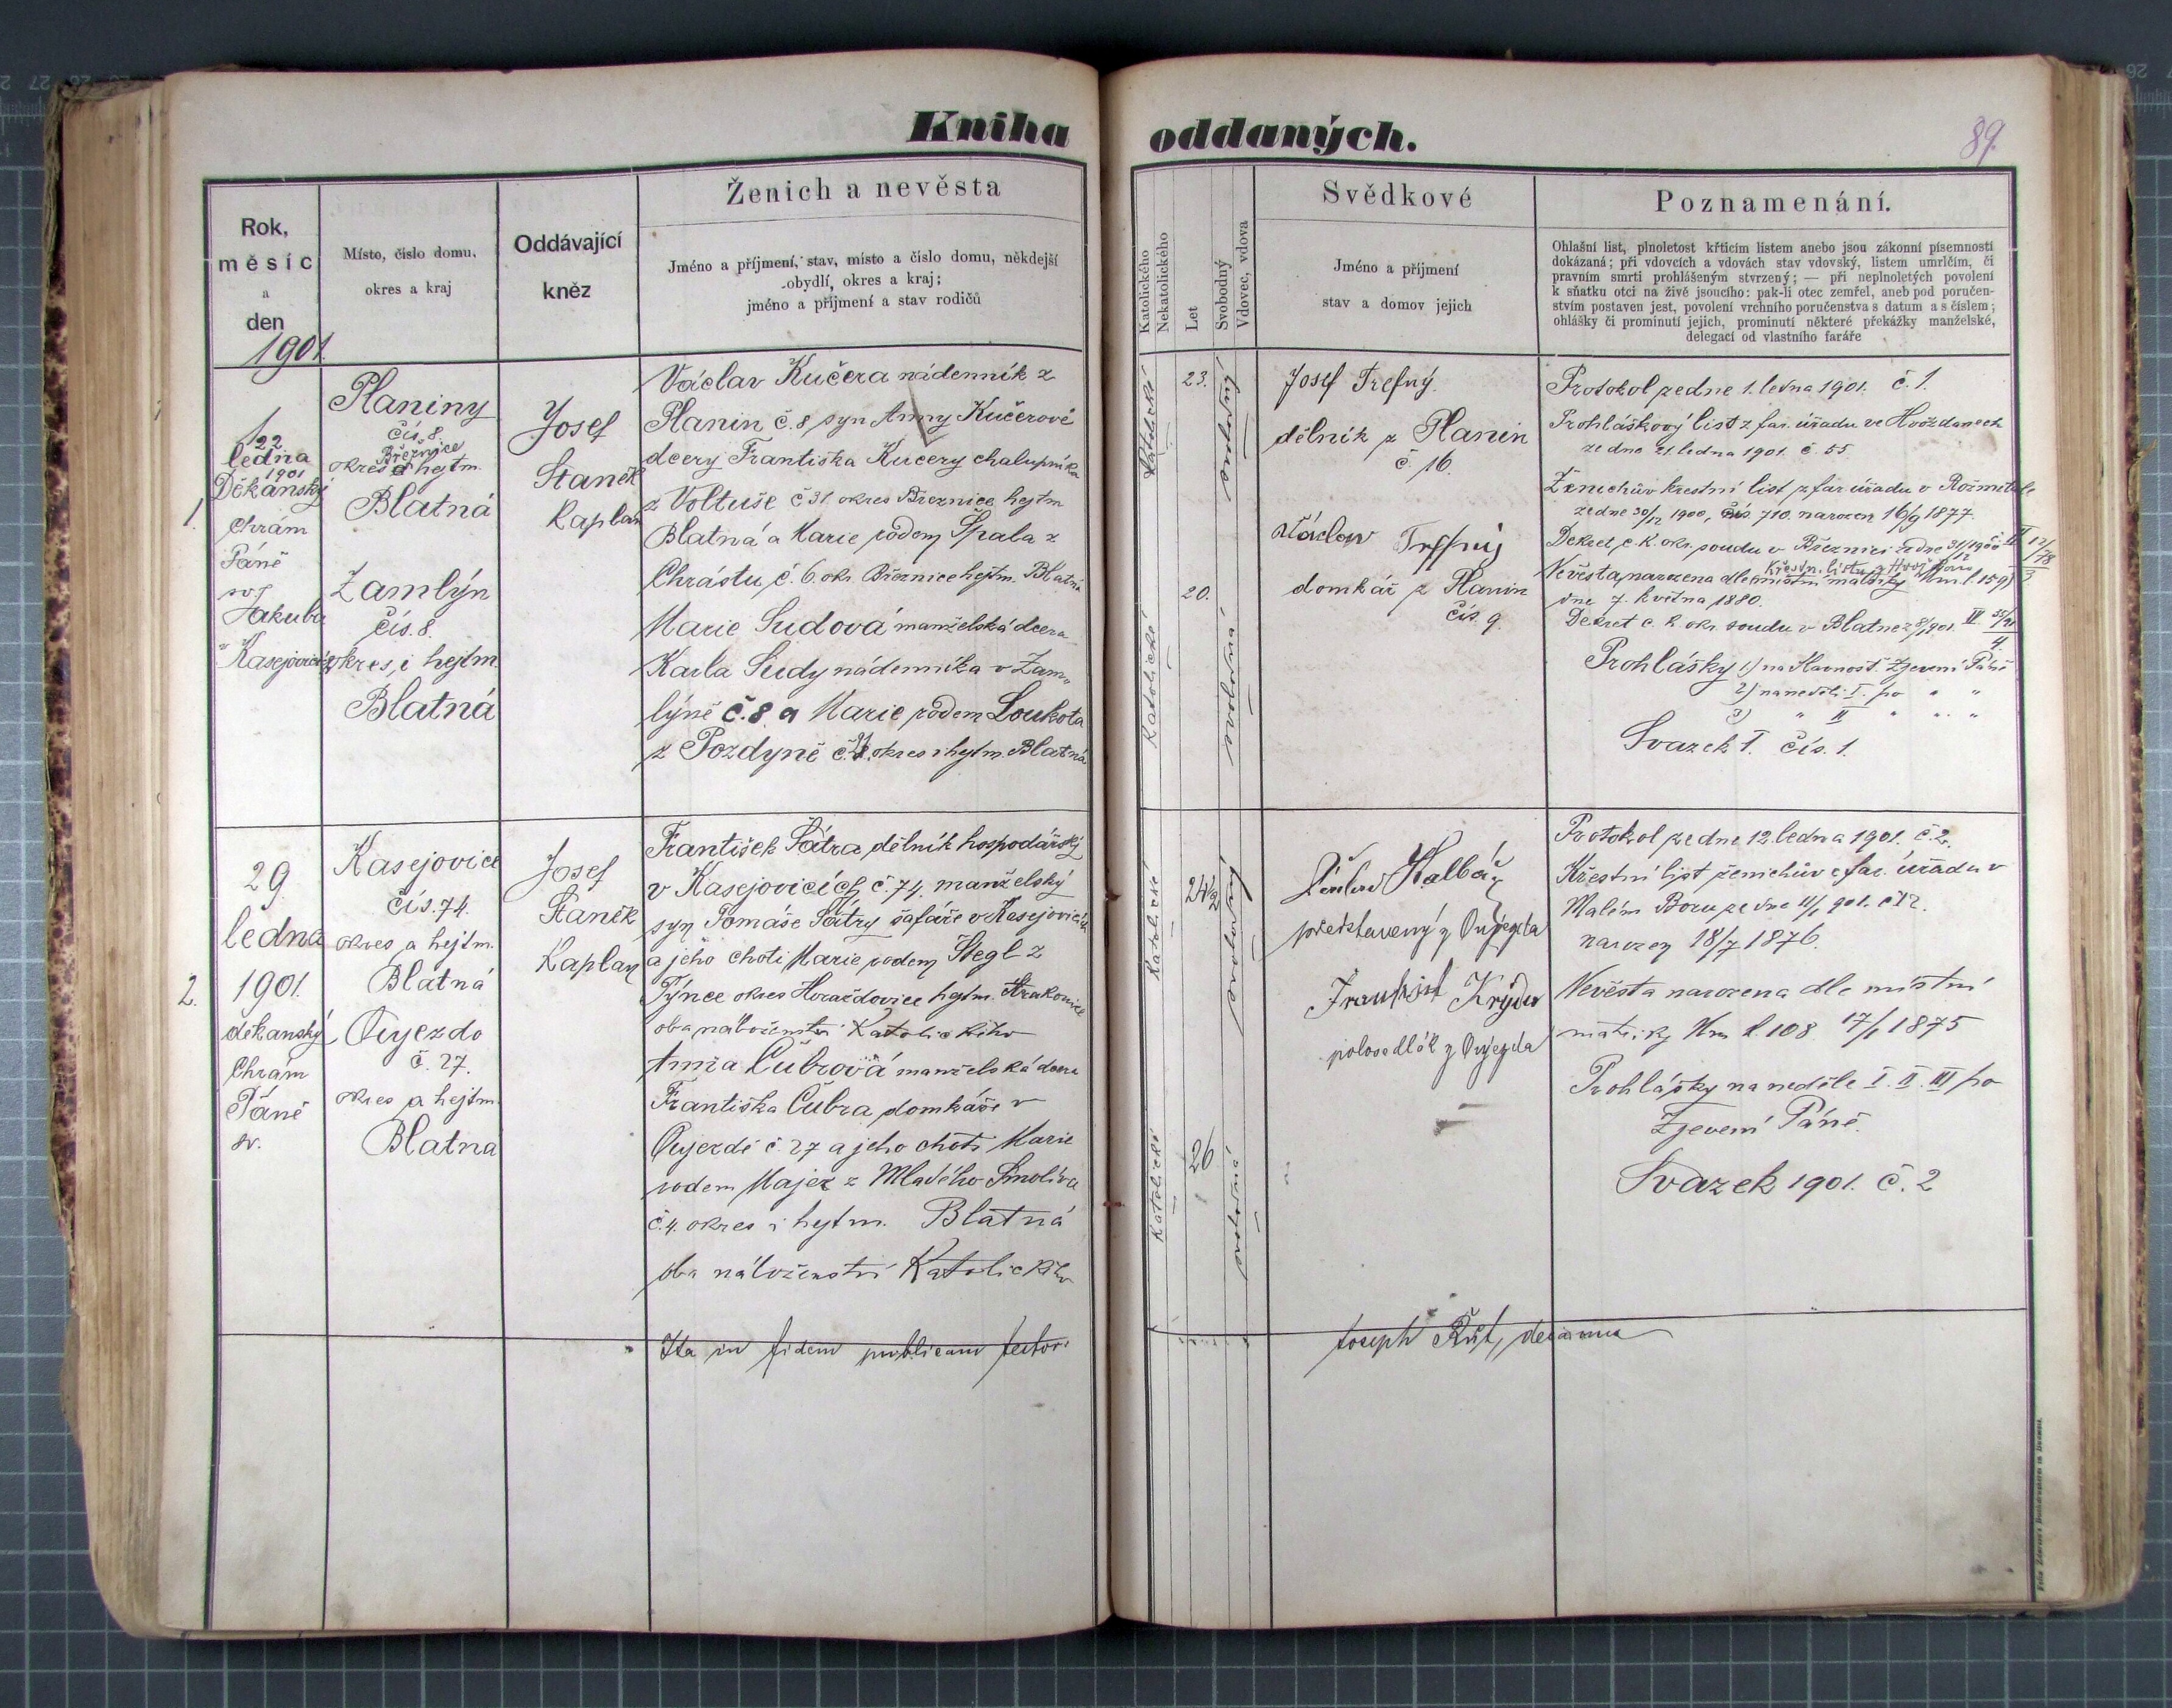 Kniha oddaných.
89.
Rok,
měsíc
a
den
1901.
Místo, číslo domu,
okres a kraj
Oddávající
kněz
Ženich a nevěsta
Jméno a příjmení, stav, místo a číslo domu, někdejší
obydlí, okres a kraj;
jméno a příjmení a stav rodičů
Katolického
Nekatolického
Let
Svobodný
Vdovec, vdova
Svědkové
Jméno a příjmení
stav a domov jejich
Poznamenání.
Ohlašní list, plnoletost křticím listem anebo jsou zákonní písemnosti
dokázaná; při vdovcích a vdovách stav vdovský, listem umrlčím, či
pravním smrti prohlášeným stvrzený; — při neplnoletých povolení
k sňatku otci na živě jsoucího: pak-li otec zemřel, aneb pod poručen-
stvím postaven jest, povolení vrchního poručenstva s datum a s číslem;
ohlášky či prominutí jejich, prominutí některé překážky manželské,
delegací od vlastního faráře
1.
22
ledna
1901
Děkánský
Chrám
Páně
sv.
Jakuba
v Kasejovicích
Planiny
čís. 8
Březnice
okres a hejtm.
Blatná
Zamlýn
čís. 8.
okres i hejtm.
Blatná
Josef
Staněk
Kaplan
Václav Kučera nádenník z
Planin č. 8 syn Anny Kučerové
dcery Františka Kučery chalupníka
z Voltuše č 31 okres Březnice hejtm
Blatná a Marie rodem Špala z
Chrástu č. 6. okr. Březnice hejtm. Blatná
Marie Sudová manželská dcera
Karla Sudy nádenníka v Zam-
lýně č. 8 a Marie rodem Loukota
z Pozdyně č. okres i hejtm. Blatná
Katolické
23.
svobodný
Katolické
20.
svobodná
Josef Trefný
dělník z Planin
č. 16.
Václav Trefný
domkář z Planin
čís. 9
Protokol ze dne 1. ledna 1901. č. 1.
Prohláškový list z far. úřadu ve Hvožďanech
ze dne 21 ledna 1901. č. 55.
Ženichův krestní list z far úřadu v Rožmitále
ze dne 30/12 1900, čís. 710. narozen 16/9 1877.
Dekret c. K. okr. soudu v Březnici ze dne 31/12 1900
Nevěsta narozena dle
dne 7. května 1880.
Dekret c. k. okr. soudu v Blatné 8/1 901. IV 55/4
Prohlášky 1) na slavnosť Zjevení Páně
2) na neděli I. po " "
3) " II " " "
Svazek I. čís. 1.
2.
29
ledna
1901.
děkanský
Chrám
Páně
sv.
Kasejovice
čís. 74.
okres a hejtm.
Blatná
Oujezdo
č. 27.
okres a hejtm.
Blatna
Josef
Staněk
Kaplan
František Šátra dělník hospodářský
v Kasejovicích č. 74. manželský
syn Tomáše Šátry šafáře v Kasejovicích
a jeho choti Marie rodem Štegl z
Týnce okres Horažďovice hejtm. Strakonice
oba náboženství Katolického
Anna Čubrová manželská dcera
Františka Čubra domkáře v
Oujezdě č. 27 a jeho choti Marie
rodem Majer z Mladého Smolivce
č. 4. okres i hejtm. Blatná
oba náboženství Katolického
Katolické
24 1/2
svobodný
Katolické
26
svobodná
Václav Halbář
představený z Oujezda
František Krýda
polosedlák z Oujezda
Protokol ze dne 12 ledna 1901. č. 2.
Křestní list ženichův z far. úřadu v
Malém Boru ze dne 11/1 901. č 12.
narozen 18/7 1876.
Nevěsta narozena dle místní
matriky l. 108 17/1 1875
Prohlášky na neděle I. II. III po
Zjevení Páně.
Svazek 1901. č. 2
Ita in fidem publicam testor:
Joseph Růt, decanus